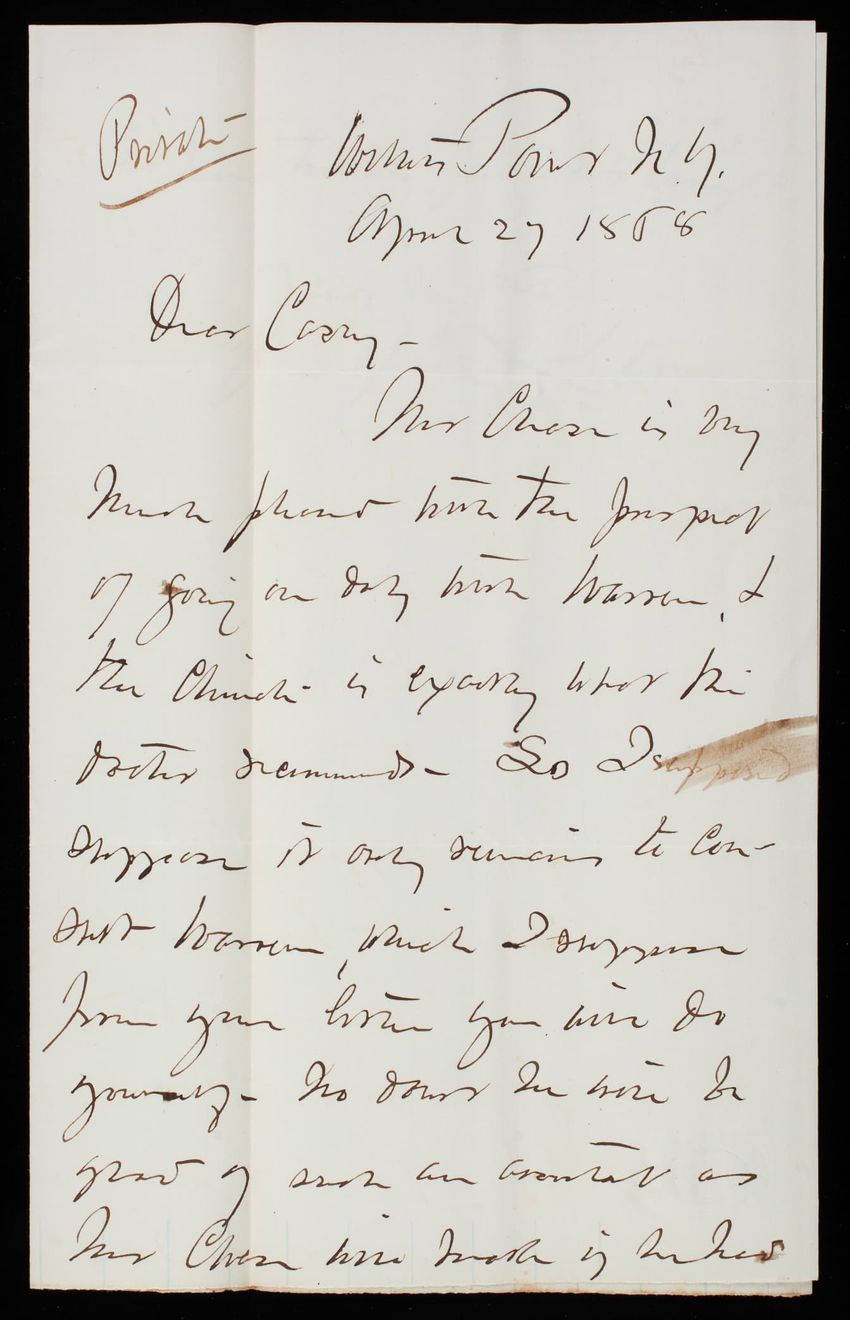 Private
Willets Point N. Y.
April 27 1868
Dear Casey -
Mr Chase is very
much pleased with the prospect
of going on duty with Warren, &
the Climate is exactly what the
doctor recommends - So I supposed
suppose it only remains to Con-
sult Warren, which I suppose
from your letter you will do
yourself - No doubt he will be
glad of such an assistant as
Mr Chase will make if he has